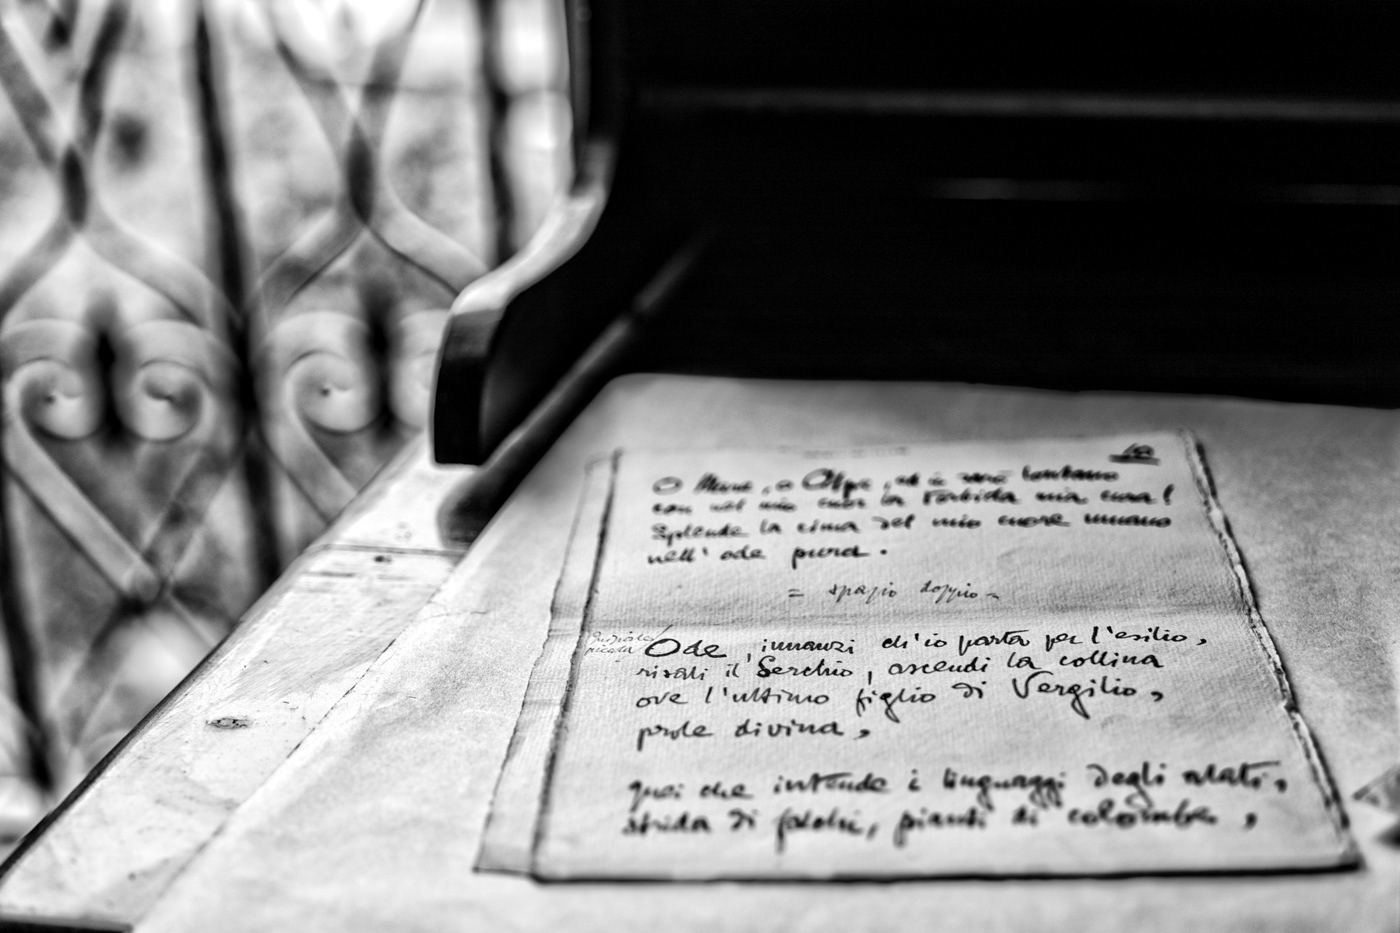 O Mare, o Alpe, ed io sarò lontano
con nel mio cuor la torbida mia cura!
Splende la cima del mio cuore umano
nell'ode pura.
= spazio doppio =
Ode, innanzi ch'io parta per l'esilio,
risali il Serchio, ascendi la collina
ove l'ultimo figlio di Vergilio,
prole divina,
quei che intende i linguaggi degli alati,
strida di falchi, pianti di colombe,